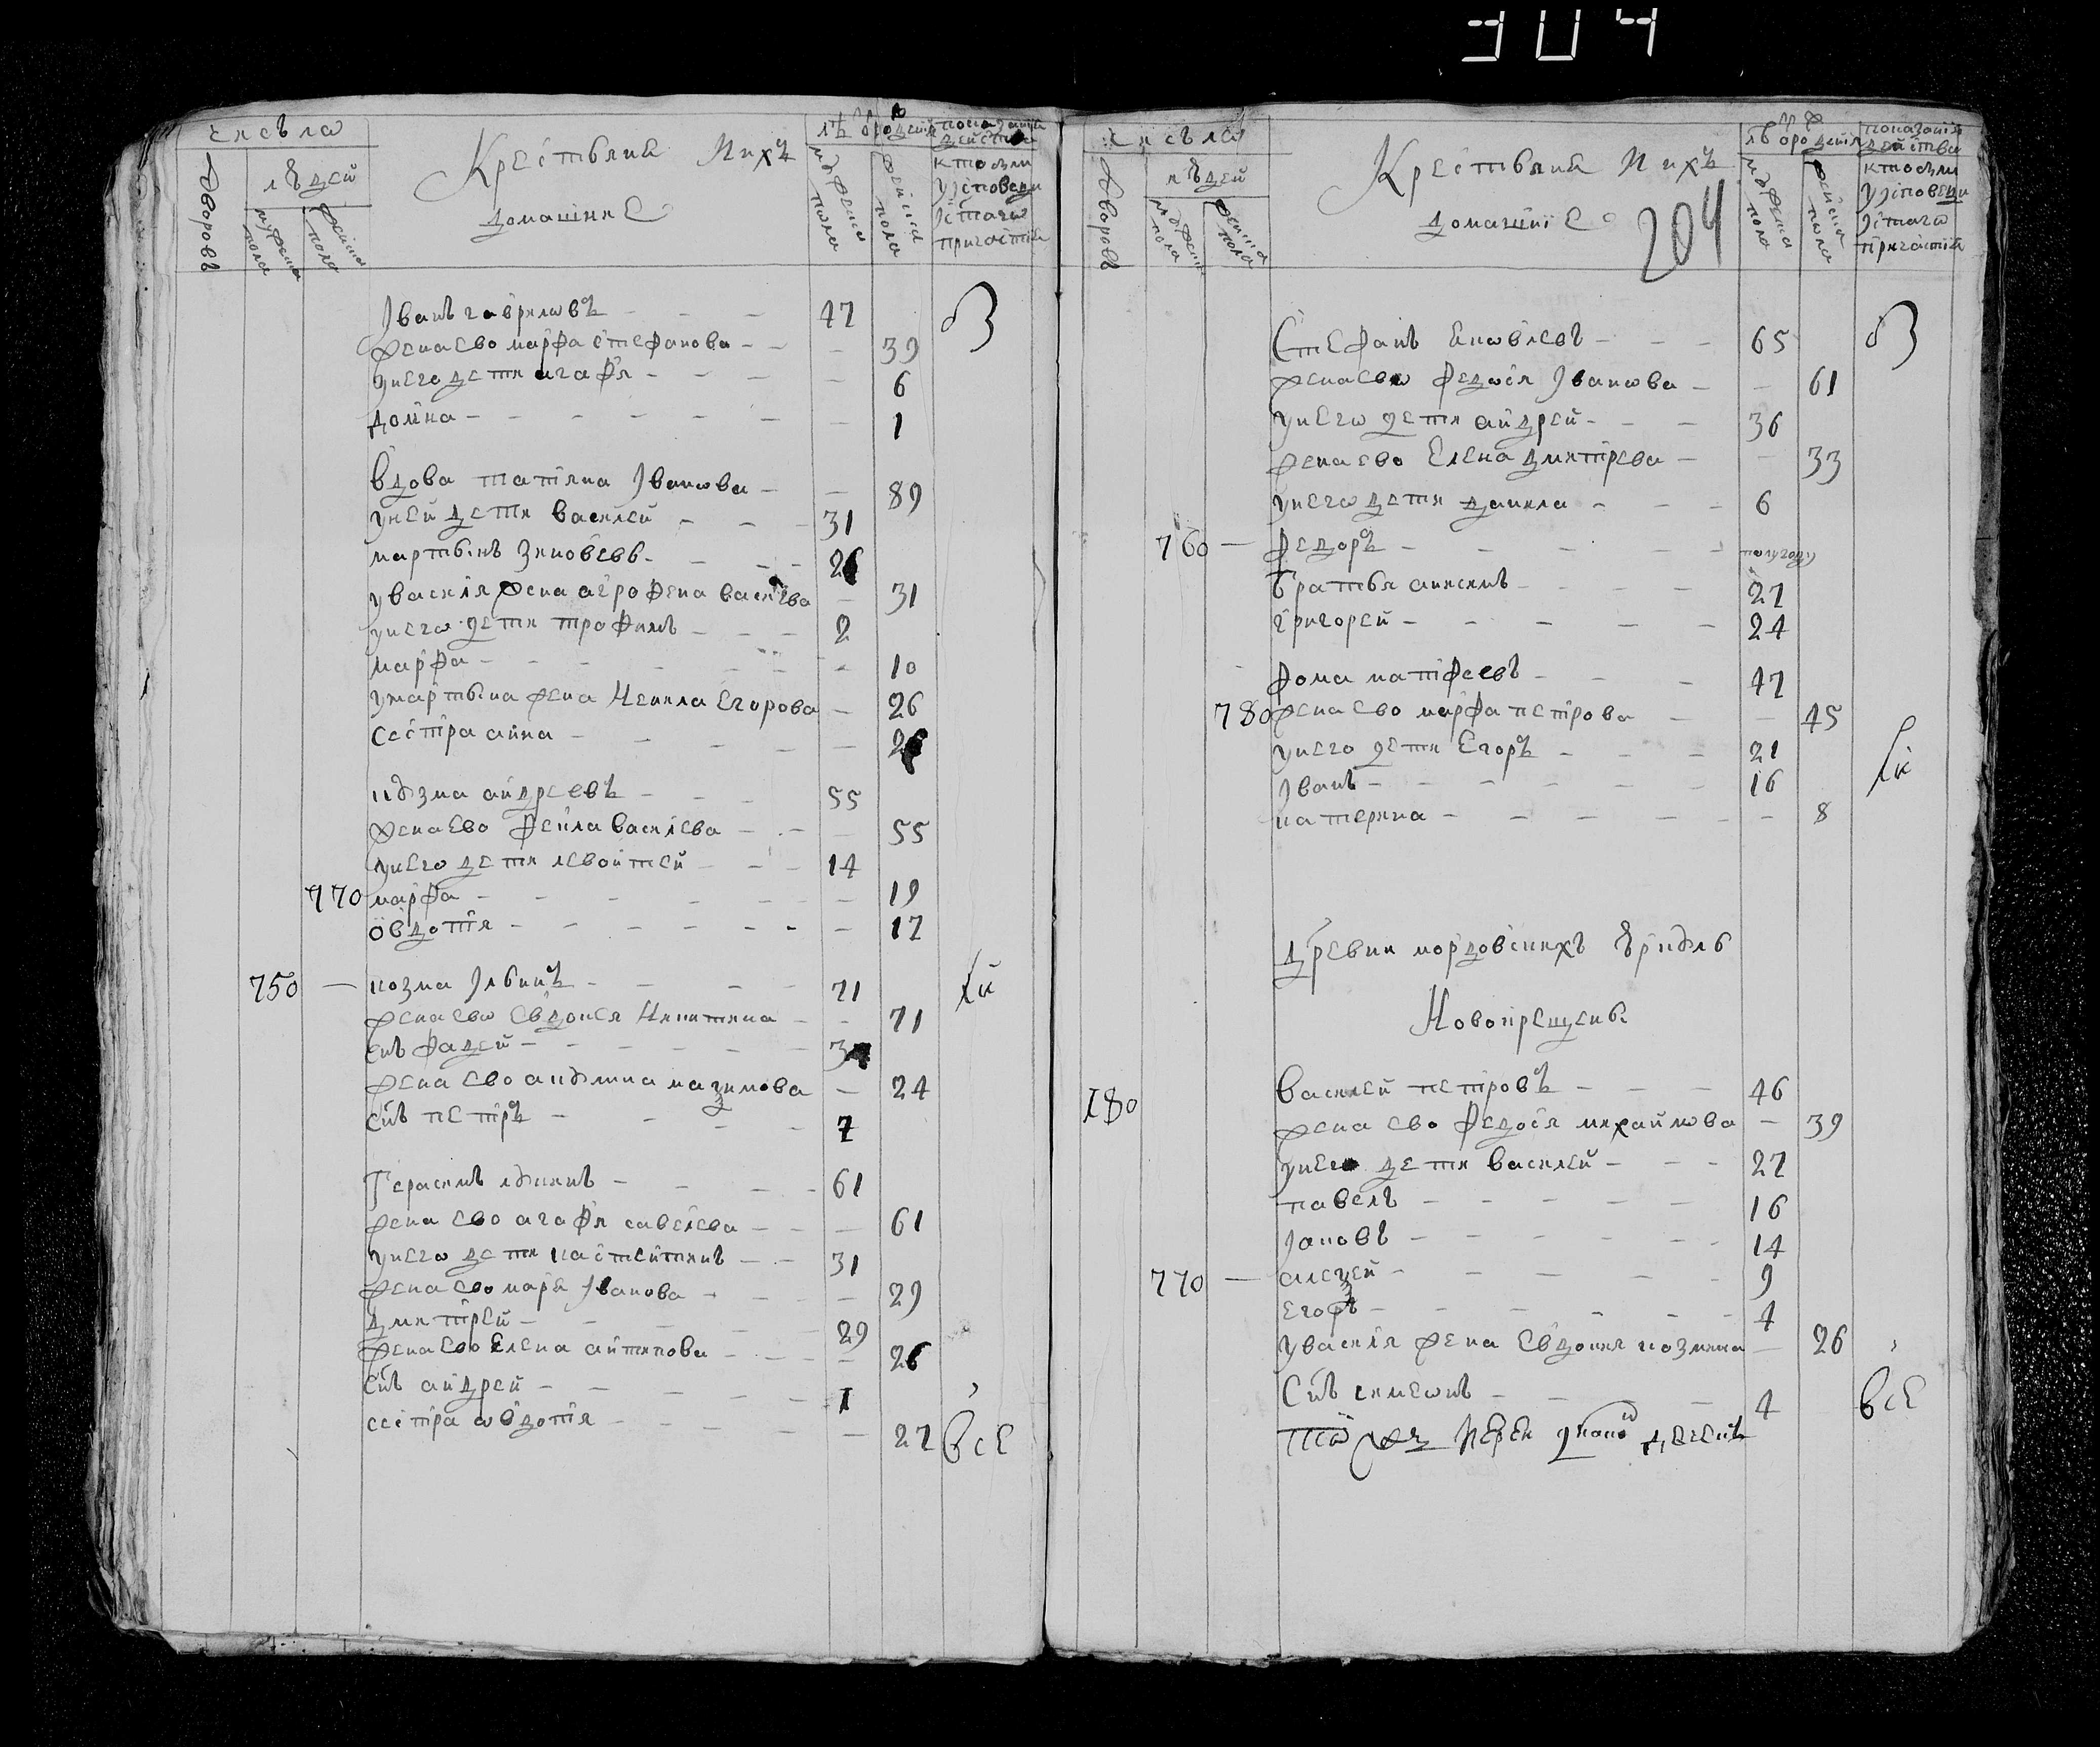 304
числа
дворовъ
людей
мужеска пола
женска пола
Крестьяне Ихъ
домашние
лѣ ѿ рождения
мужеска пола
женска пола
показание действа
кто были у исповеди и с таго причастия
Іванъ гавриловъ - - - 47
жена ево марфа степанова - - - 39
у него дети агафя - - - 6
домна - - - 1
Вдова татяна Іванова - - 89
у ней дети василей - - - 31
мартынъ зиновевъ - - - 26
у василя жена агрофена васильева - 31
у него дети трофимъ - - - 2
марфа - - - 10
у мартына жена Ненила Егорова - 26
сестра анна - - - 26
кузма андреевъ - - - 55
жена ево фекла васильева - - - 55
у него дети левонтей - - - 14
770 марфа - - - 19
овдотя - - - 17
750 — козма Ільинъ - - - 71
жена ево Евдокея Никитина - - 71
снъ фадей - - - 3
жена ево акулина назимова - 24
снъ петръ - - - 7
Герасимъ лукинъ - - - 61
жена ево агафя савельева - - - 61
у него дети костентинъ - - 31
жена ево маря Іванова - - 29
дмитрей - - - 29
жена ево Елена антипова - - - 26
снъ андрей - - - 1
сестра овдотя - - - 27
все
числа
дворовъ
людей
мужеска пола
женска пола
Крестьяне Ихъ
домашние
204
лѣ ѿ рождения
мужеска пола
женска пола
показание действа
кто были у исповеди и с таго причастия
Стефанъ Яковлевъ - - - 65
жена ево федося Іванова - - 61
у него дети андрей - - - 36
жена ево Елена дмитрева - - 33
у него дети данила - - - 6
760 — федоръ - - - полугоду
братья анисимъ - - - 27
григорей - - - 24
фома матфеевъ - - - 47
780 жена ево марфа петрова - - 45
у него дети Егоръ - - - 21
Іванъ - - - 16
катерина - - - 8
древни мордовскихъ
Новокрещены
180 василей петровъ - - - 46
жена ево федося михайлова - 39
у него дети василей - - - 27
павелъ - - - 16
Іаковъ - - - 14
770 — алезей - - - 9
Егоръ - - - 4
у василя жена Евдокея козмина - 26
Снъ симеонъ - - - 4
все